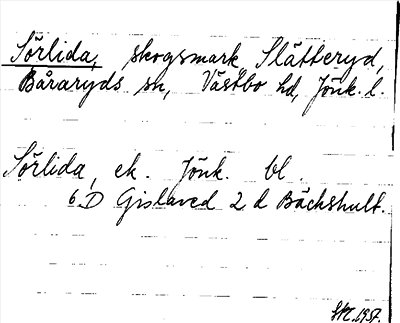 Sörlida, skogsmark, Slätteryd,
Båraryds sn, Västbo hd, Jönk. l.
Sörlida, ek. Jönk. bl.
6 D Gislaved 2 d Bäckshult.
1957.